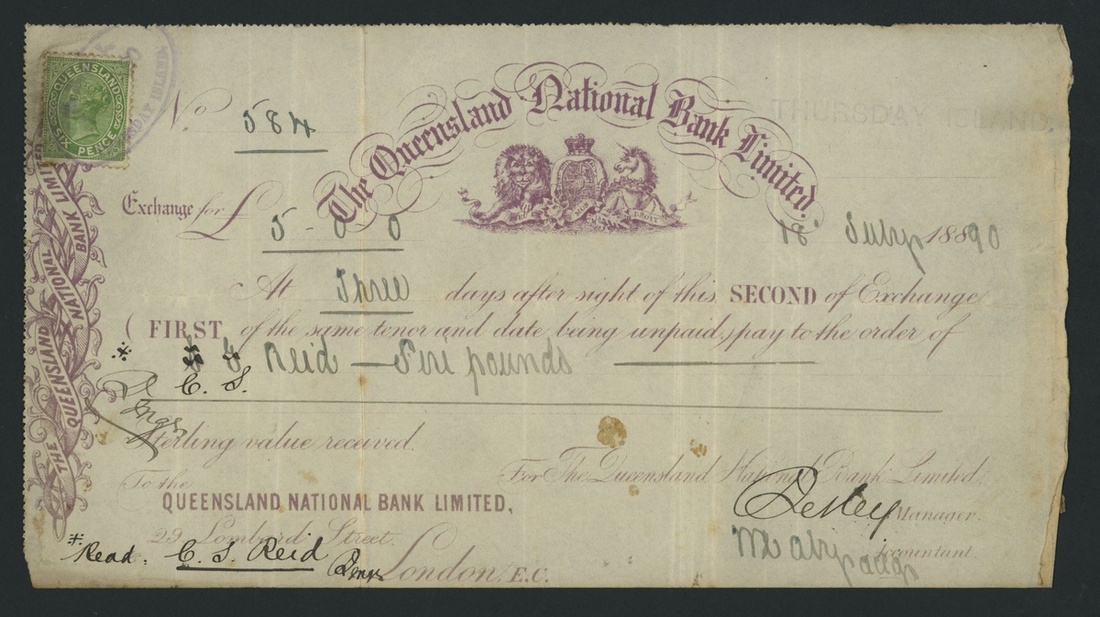 QUEENSLAND
SIX PENCE
THURSDAY ISLAND
No 584
The Queensland National Bank Limited.
Exchange for £ 5-0 0
18 July 1890
At Three days after sight of this SECOND of Exchange
(FIRST, of the same tenor and date being unpaid) pay to the order of
* Reid — Five pounds
C. S.
Sterling value received.
For The Queensland National Bank Limited,
To the
QUEENSLAND NATIONAL BANK LIMITED,
Manager.
29 Lombard Street.
* Read. C. S. Reid
Accountant.
London, E.C.
THE QUEENSLAND NATIONAL BANK LIMITED